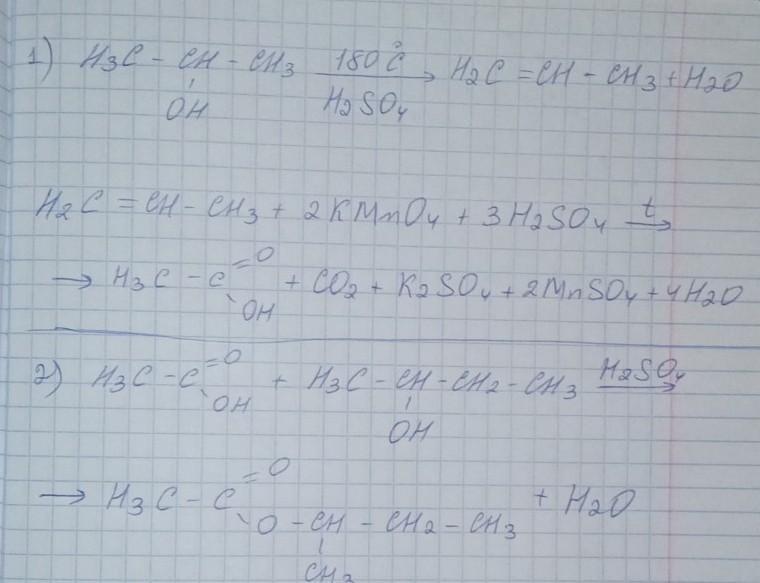 1) H3C - CH - CH3 180°C → H2C = CH - CH3 + H2O
OH H2SO4
H2C = CH - CH3 + 2KMnO4 + 3H2SO4 t →
→ H3C - C =O - OH + CO2 + K2SO4 + 2MnSO4 + 4H2O
2) H3C - C =O - OH + H3C - CH - CH2 - CH3 H2SO4 →
OH
→ H3C - C =O - O - CH - CH2 - CH3 + H2O
CH3